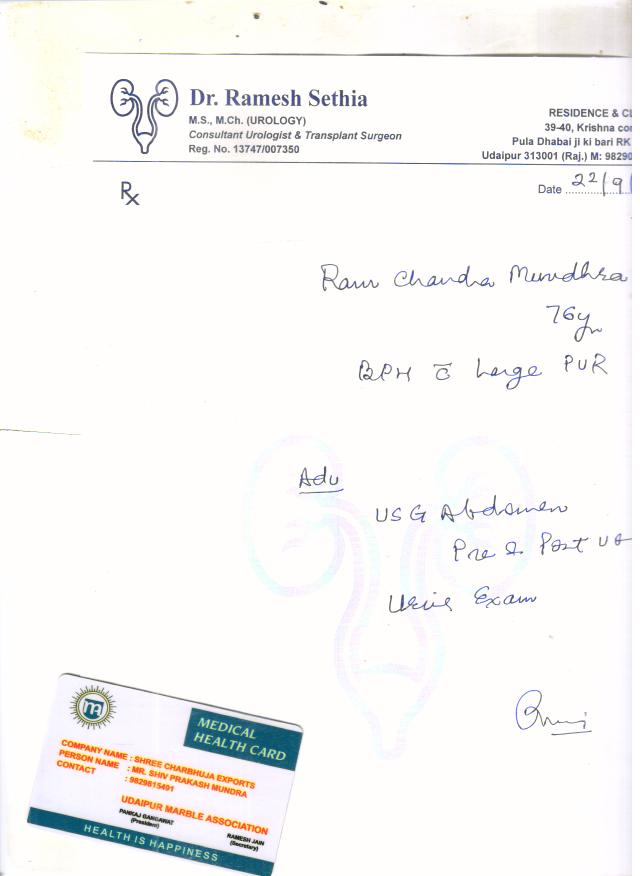 Dr. Ramesh Sethia
M.S., M.Ch. (UROLOGY)
Consultant Urologist & Transplant Surgeon
Reg. No. 13747/007350
RESIDENCE & CL
39-40, Krishna co
Pula Dhabai ji ki bari RK
Udaipur 313001 (Raj.) M: 9829
Rx
Date 22/9/
Ram Chandra Mundhra
76y
BPH c̄ Large PUR
Adv
USG Abdomen
Pre & Post
Urine Exam
MEDICAL
HEALTH CARD
COMPANY NAME : SHREE CHARBHUJA EXPORTS
PERSON NAME : MR. SHIV PRAKASH MUNDRA
CONTACT : 9829815491
UDAIPUR MARBLE ASSOCIATION
PANKAJ GANGAWAT
(President)
RAMESH JAIN
(Secretary)
HEALTH IS HAPPINESS